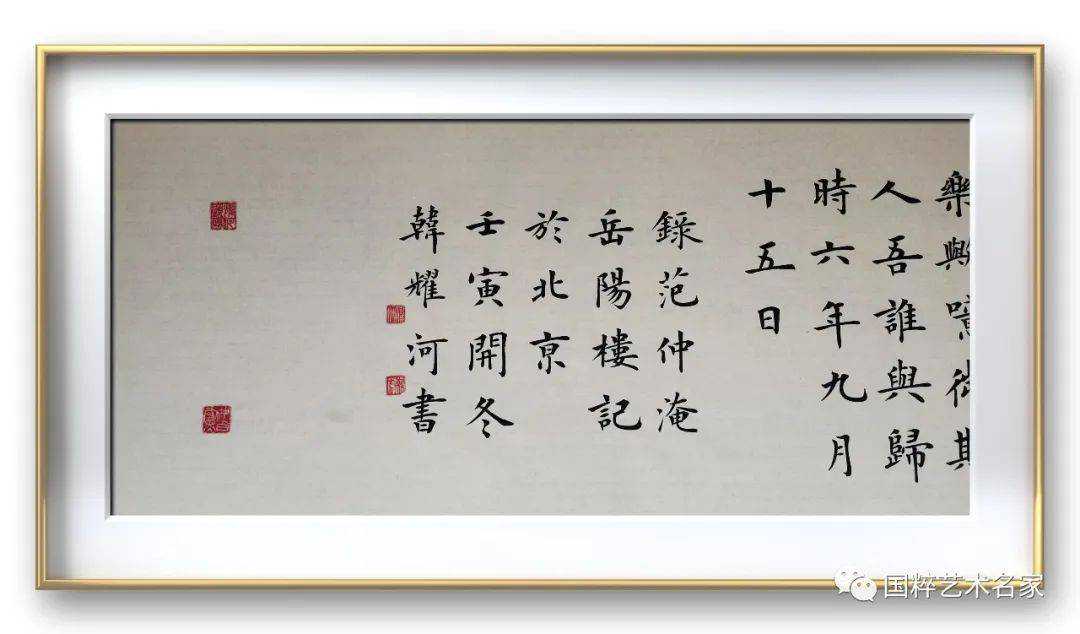 樂歟噫微斯
人吾誰與歸
時六年九月
十五日
錄范仲淹
岳陽樓記
於北京
壬寅開冬
韓耀河書
国粹艺术名家